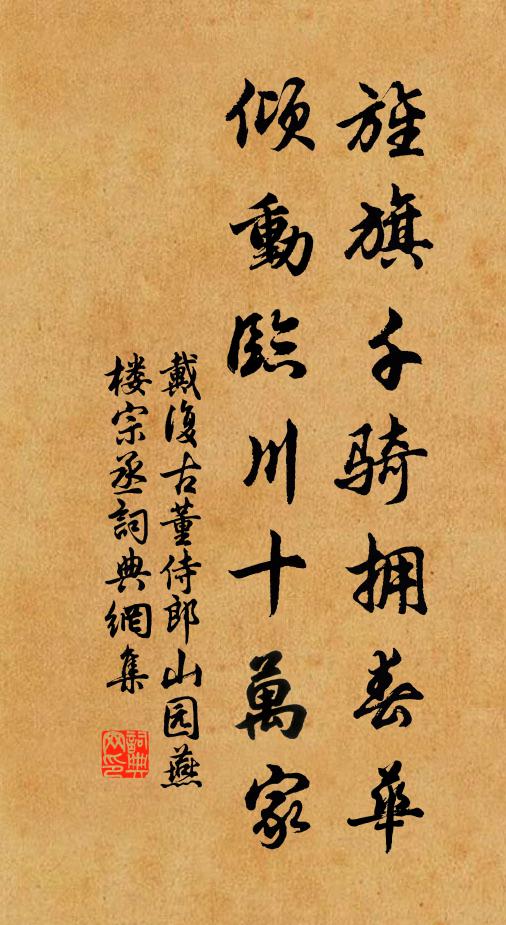 旌旗千骑拥春华
倾動臨川十萬家
戴復古董侍郎山园燕
楼宗丞詞典網集
詞典網印